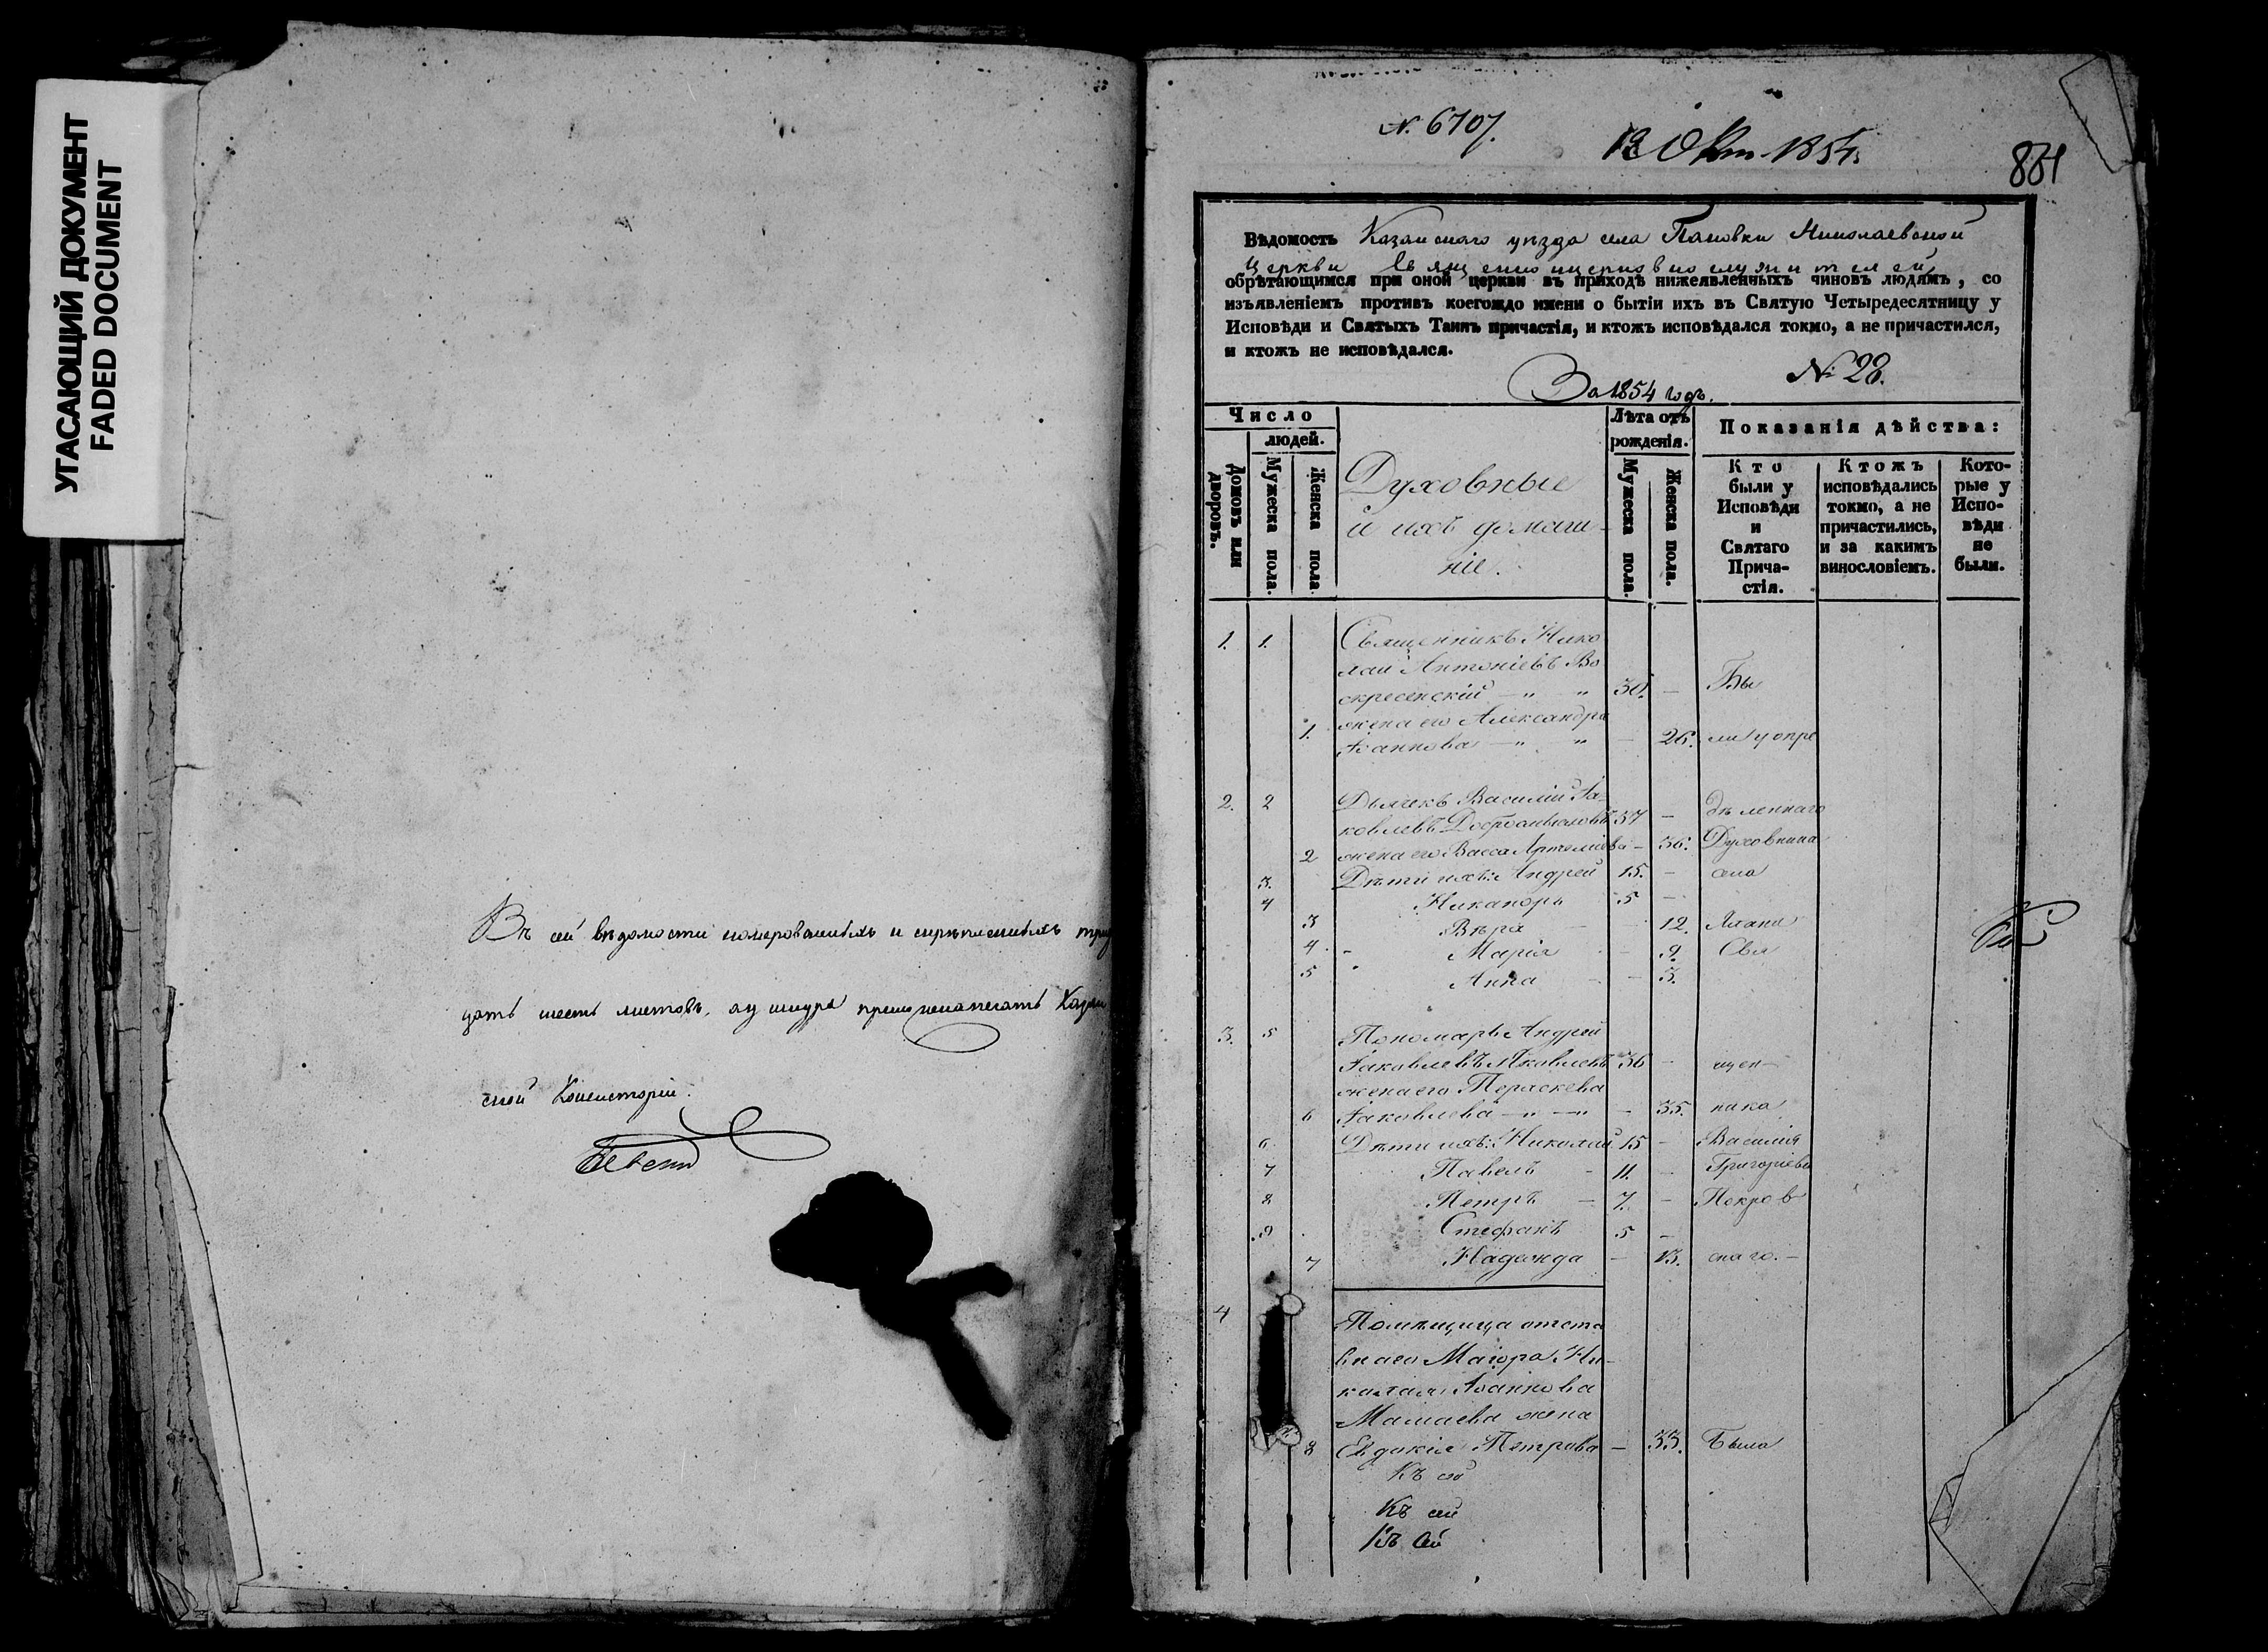 УГАСАЮЩИЙ ДОКУМЕНТ
FADED DOCUMENT
Въ сей вѣдомости номерованныхъ и скрѣпленныхъ трид
цать шесть листовъ, а у шнура
ской Консисторіи.
№ 6707.
Окт. 1854
Вѣдомость Казанскаго уѣзда села Пановки Николаевской
Церкви Священноицерковнослужителей,
обрѣтающимся при оной церкви въ приходѣ нижеявленныхъ чиновъ людямъ, со
изъявленіемъ противъ коегождо имени о бытіи ихъ въ Святую Четыредесятницу у
Исповѣди и Святыхъ Таинъ причастія, и ктожъ исповѣдался токмо, а не причастился,
и ктожъ не исповѣдался.
№ 28.
За 1854 годъ.
Число
людей.
Домовъ или дворовъ.
Мужеска пола.
Женска пола.
Духовные
и ихъ домаш-
ніе.
Лѣта отъ
рожденія.
Мужеска пола.
Женска пола.
Показанія дѣйства:
Кто
были у
Исповѣди
и
Святаго
Прича-
стія.
Ктожъ
исповѣдались
токмо, а не
причастились,
и за какимъ
винословіемъ.
Кото-
рые у
Испо-
вѣди
не
были.
1. 1. Священникъ Нико
лай Антоніевъ Во
скресенскій — " " 30. — Бы
1. жена его Александра
Іоаннова — " " — 26. ли у опре
2. 2 Дьячекъ Василій Іа-
ковлевъ 37 — дѣленнаго
2 жена его Васса Артеміева — 36. Духовника
3. Дѣти ихъ: Андрей 15. — села
4 Никаноръ 5 —
3 Вѣра — 12.
4. Марія — 9. Свя
5 Анна — 3.
3. 5 Пономарь Андрей
Іаковлевъ Яковлевъ 36 — щен-
жена его Параскева
6 Іаковлева — " — " — 35. ника
6. Дѣти ихъ: Николай 15 — Василія
7 Павелъ — 11. — Григоріева
8 Петръ — 7. — Покров
9 Стефанъ 5 —
7 Надежда — 13. скаго. —
4 Помѣщица отста
внаго Маіора Ни-
калая Іоаннова
Мамаева жена
8 Евдокія Петрова — 33. Была
Къ сей
Къ сей
Къ сей